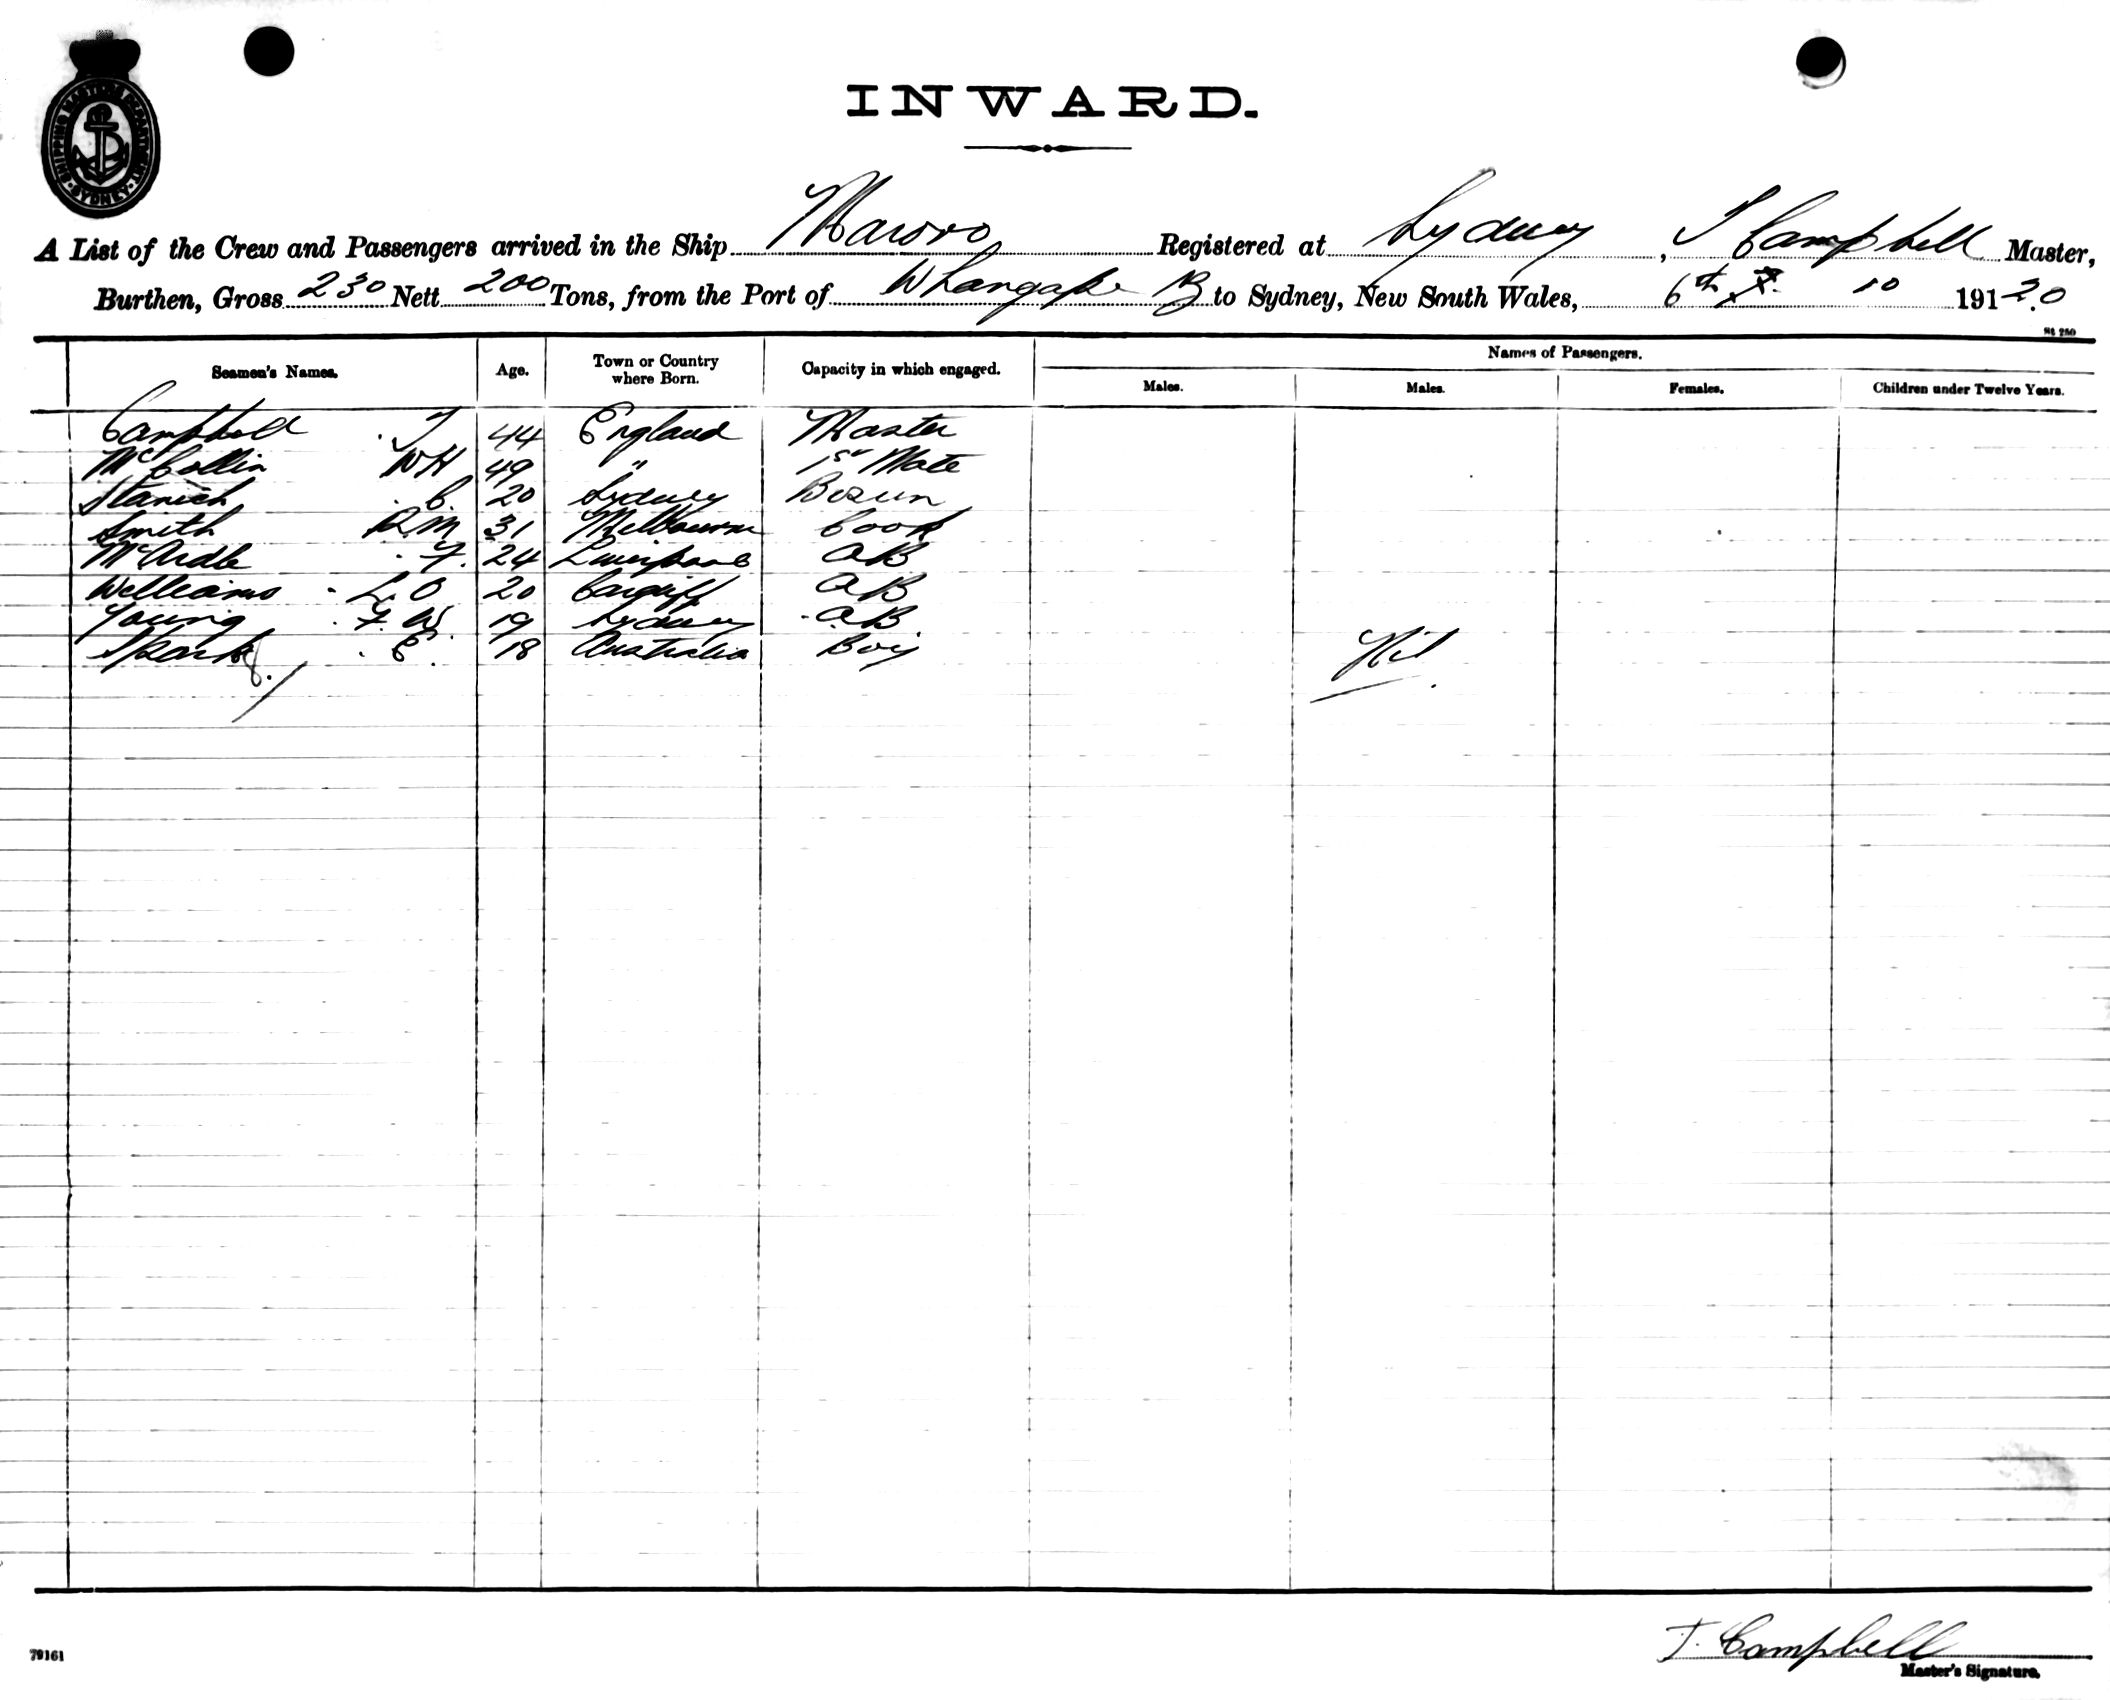 SHIPPING MASTERS DEPARTMENT · SYDNEY ·
INWARD.
A List of the Crew and Passengers arrived in the Ship Marovo Registered at Sydney, T Campbell Master,
Burthen, Gross 230 Nett 200 Tons, from the Port of Whangape to Sydney, New South Wales, 6th 10 191 20
St 250
Seamen's Names. Age. Town or Country where Born. Capacity in which engaged. Names of Passengers.
Males. Males. Females. Children under Twelve Years.
Campbell T 44 England Master
McCollin WH 49 " 1st Mate
Stanich C. 20 Sydney Bosun
Smith R.M 31 Melbourne Cook
McArdle F. 24 Liverpool AB
Williams L.O 20 Cardiff AB
Young F. W. 19 Sydney AB
E. 18 Australia Boy Nil
8.
T. Campbell
79161 Master's Signature.